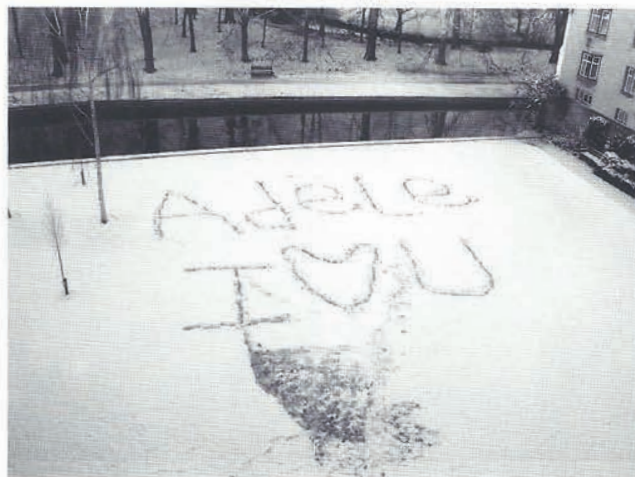 Adele
I ♥ U